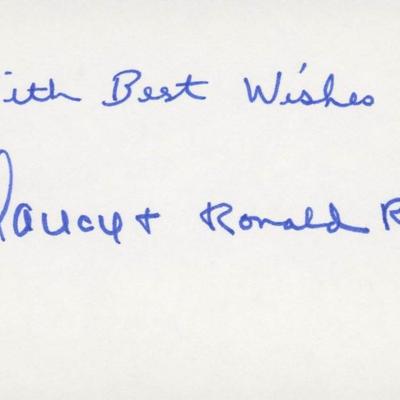 ith Best Wishes
Nancy + Ronald R